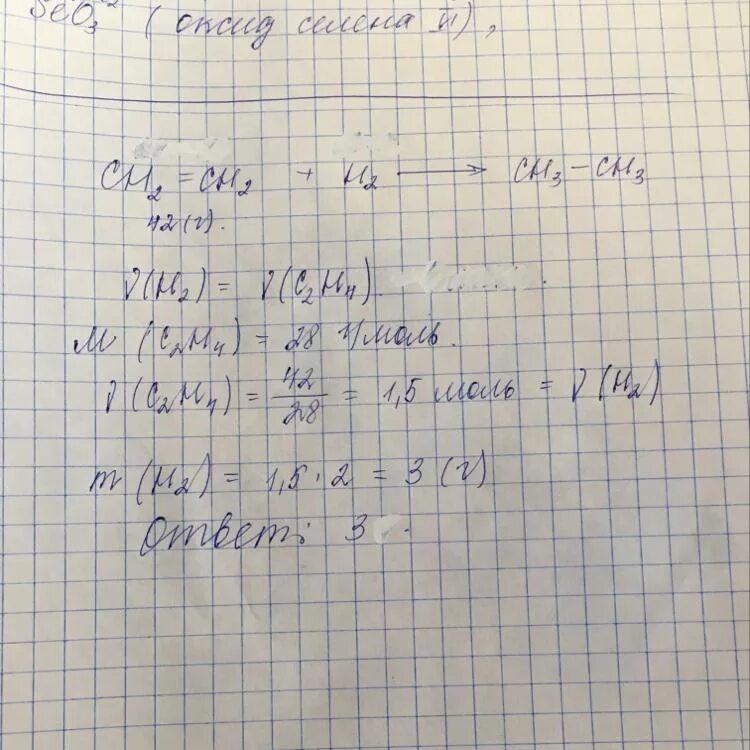 SeO₃ (оксид селена VI),
CH₂ = CH₂ + H₂ → CH₃ – CH₃
42 (г).
ν(H₂) = ν(C₂H₄).
M (C₂H₄) = 28 г/моль.
ν(C₂H₄) = 42/28 = 1,5 моль = ν(H₂)
m (H₂) = 1,5 · 2 = 3 (г)
Ответ: 3 .